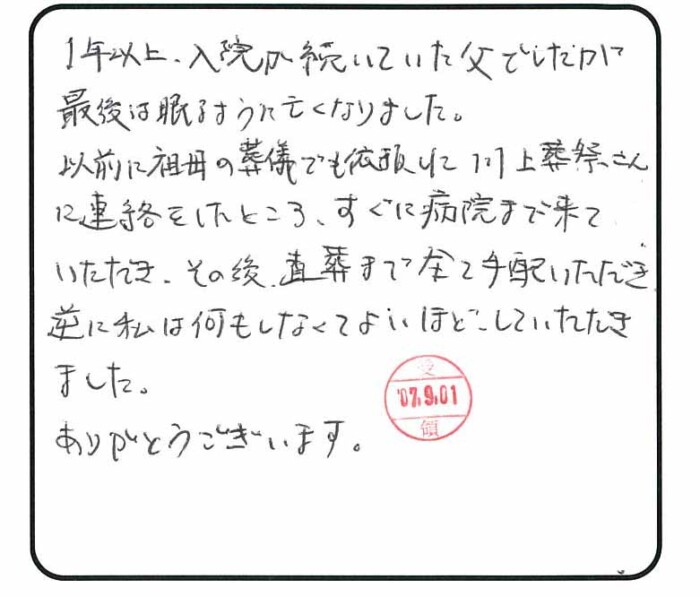 1年以上、入院が続いていた父でしたが
最後は眠るように亡くなりました。
以前に祖母の葬儀でも依頼した川上葬祭さん
に連絡をしたところ、すぐに病院まで来て
いただき、その後、直葬まで全て手配いただき
逆に私は何もしなくてよいほどしていただき
ました。
ありがとうございます。
受
'07.9.01
領